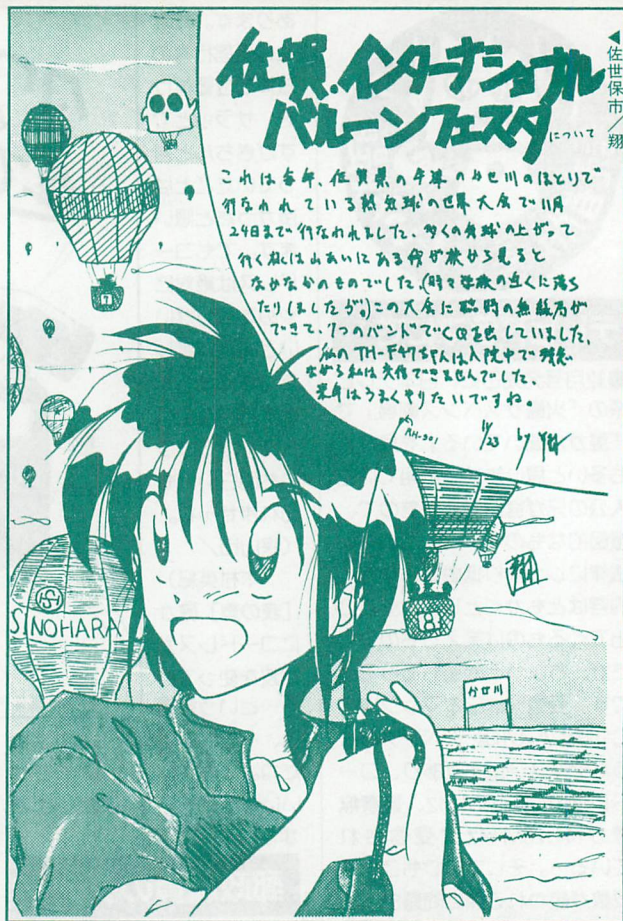 ◀佐世保市／翔
佐賀.インターナショナル
バルーンフェスタについて
これは毎年、佐賀県の今津のかせ川のほとりで
行なわれている熱気球の世界大会で11月
24日まで行なわれました。多くの気球の上がって
行く様は山あいにある我が校から見ると
なかなかのものでした。(時々学校の近くに落ち
たりしましたが。)この大会に臨時の無線局が
できて、7つのバンドでCQを出していました。
私のTH-F47ちゃんは入院中で残念
ながら私は交信できませんでした。
来年はうまくやりたいですね。
RH-901
11/23 by 翔
7
SINOHARA
8
翔
かせ川